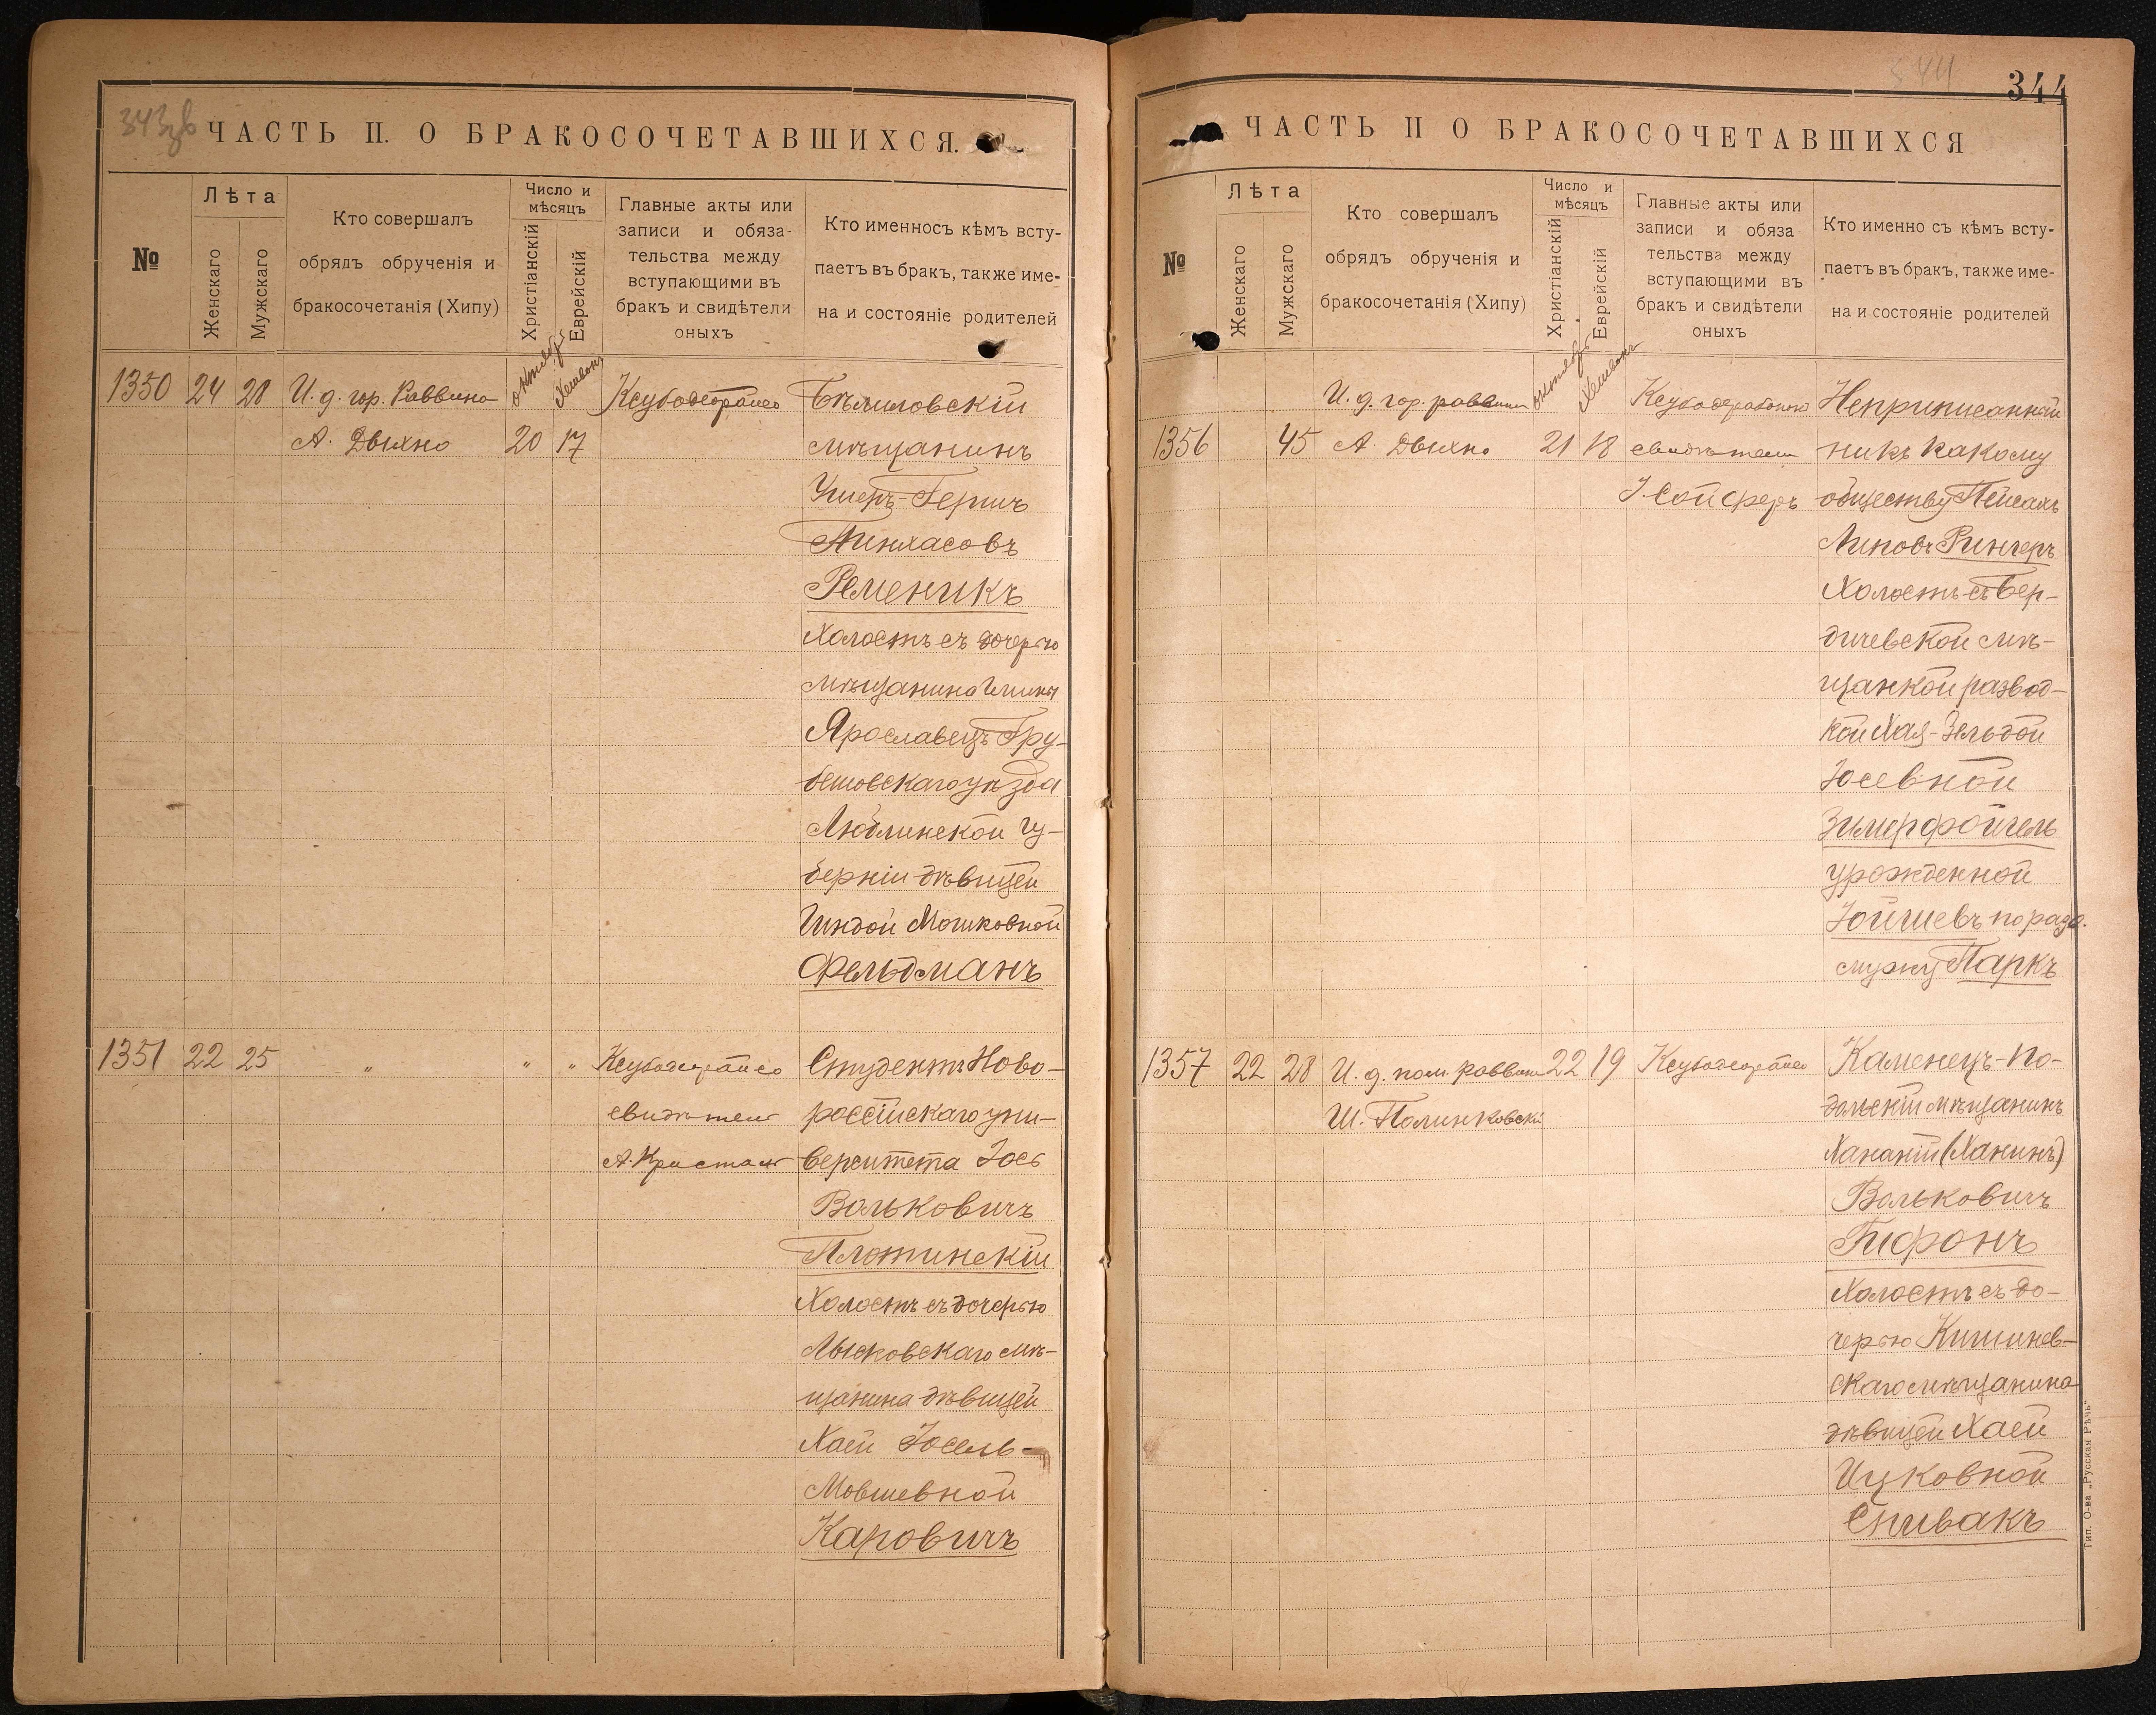 343 зв
ЧАСТЬ II. О БРАКОСОЧЕТАВШИХСЯ.
№
Лѣта
Женскаго
Мужскаго
Кто совершалъ
обрядъ обрученія и
бракосочетанія (Хипу)
Число и
мѣсяцъ
Христіанскій
Еврейскій
Главные акты или
записи и обяза-
тельства между
вступающими въ
бракъ и свидѣтели
оныхъ
Кто именносъ кѣмъ всту-
паетъ въ бракъ, также име-
на и состояніе родителей
октябрь
Хешвонъ
1350 24 28 И. д. гор. Раввина
Бѣлиловскій
А. Двихно 20 17 мѣщанинъ
Ушеръ-Гершъ
Пинхасовъ
Ременикъ
Холостъ съ дочерью
мѣщанина
Ярославецъ Гру-
бешовскаго уѣзда
Люблинской гу-
берніи дѣвицей
Гиндой Мошковной
Фельдманъ
1351 22 25 " " " Студентъ Ново-
свидѣтель россійскаго уни-
А. Кристалъ верситета Іось
Вольковичъ
Плотинскій
Холостъ съ дочерью
Лысковскаго мѣ-
щанина дѣвицей
Хаей Іосель-
Мовшевной
Каровичъ
344
344
ЧАСТЬ II О БРАКОСОЧЕТАВШИХСЯ
№
Лѣта
Женскаго
Мужскаго
Кто совершалъ
обрядъ обрученія и
бракосочетанія (Хипу)
Число и
мѣсяцъ
Христіанскій
Еврейскій
Главные акты или
записи и обяза
тельства между
вступающими въ
бракъ и свидѣтели
оныхъ
Кто именно съ кѣмъ всту-
паетъ въ бракъ, также име-
на и состояніе родителей
октябрь
Хешвонъ
И. д. гор. раввина
Неприписанный
1356 45 А. Двихно 21 18 свидѣтели никъ какому
І. Сойферъ обществу Пейсахъ
Липовъ Рингеръ
Холостъ съ Бер-
дичевской мѣ-
щанкой развод-
кой Хая-Зельдой
Іосевной
Зимерфойгель
урожденной
Іойшевъ по разв.
мужу Паркъ
1357 22 28 И. д. пом. раввина 22 19 Каменецъ-По-
Ш. Полинковскій дольскій мѣщанинъ
Хананій (Ханинъ)
Вольковичъ
Гифонъ
Холостъ съ до-
черью Кишинев-
скаго мѣщанина
дѣвицей Хаей
Ицковной
Спивакъ
Тип. О-ва „Русская Рѣчь"